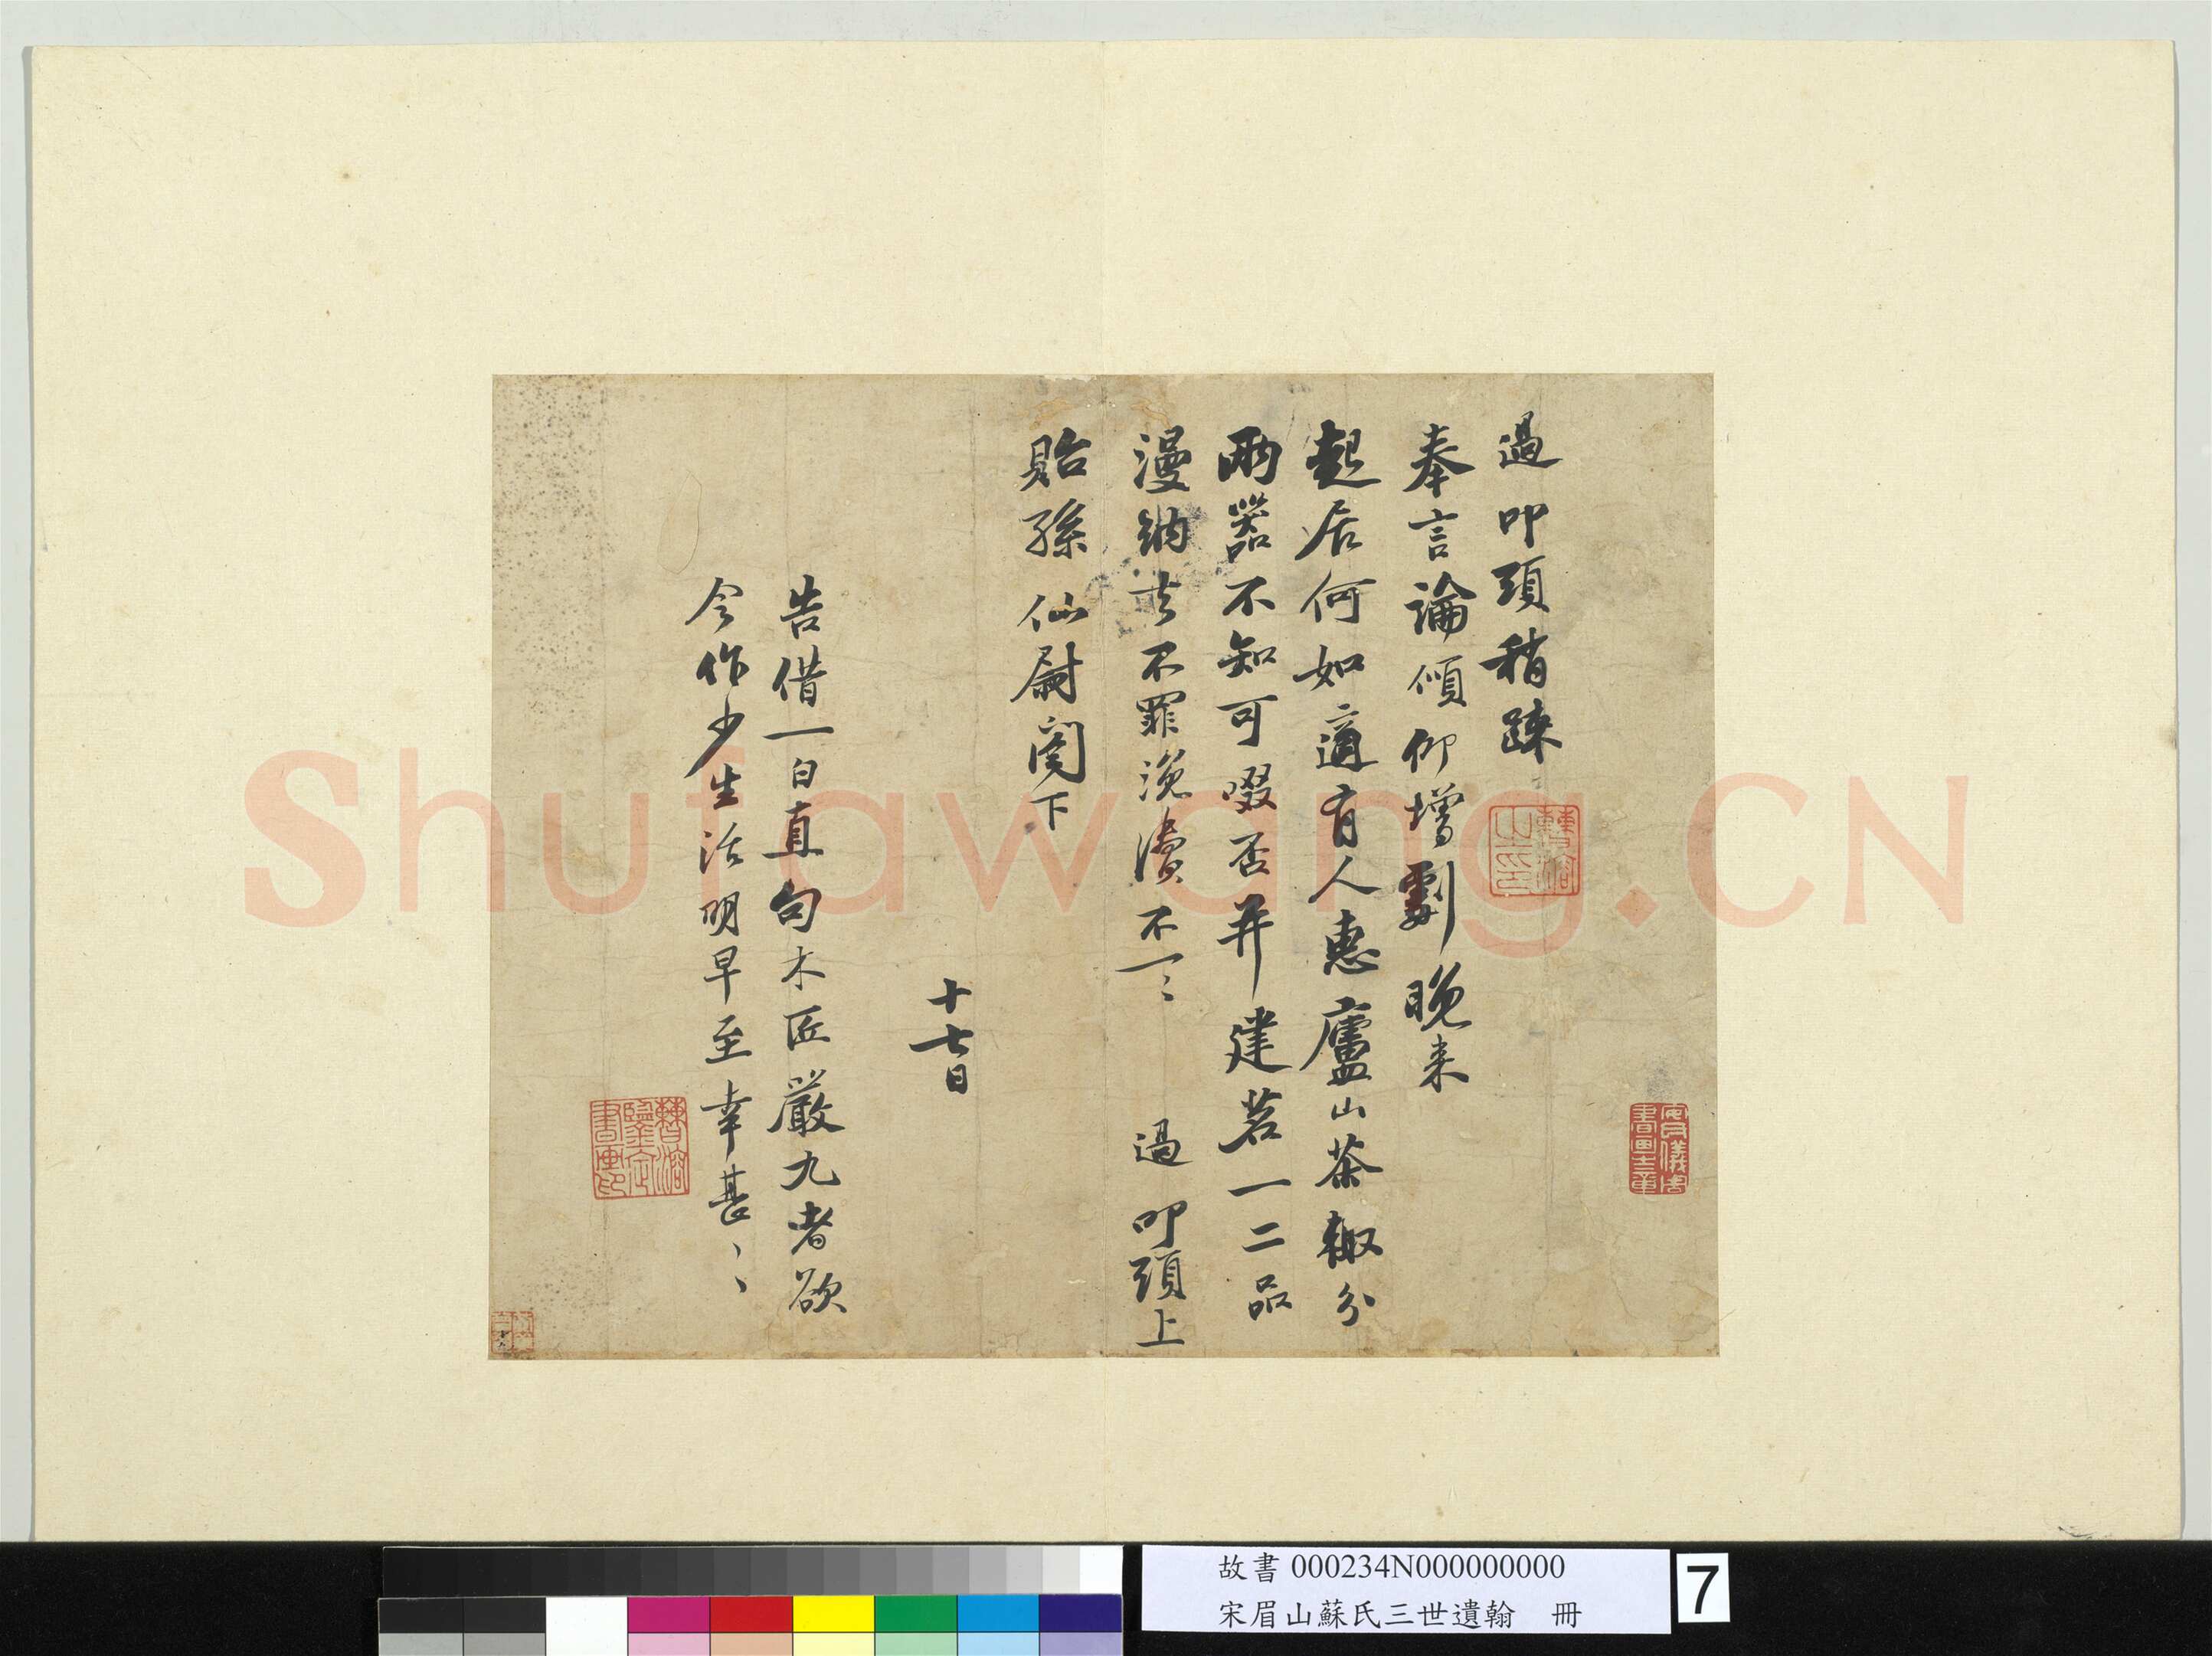 過叩頭稍疎
奉言論傾仰增劇晚来
起居何如適有人惠廬山茶輙分
兩器不知可啜否并建茗一二品
漫納去不罪浼瀆不一〻 過叩頭上
貽孫仙尉閣下
十七日
告借一白直句木匠嚴九者欲
令作少生活明早至幸甚〻〻
安儀周書畫之章
Shufawang.CN
故書 000234N000000000
宋眉山蘇氏三世遺翰 冊
7